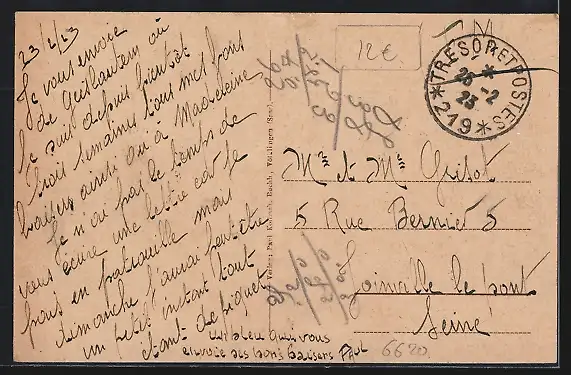 23/2/23
Je vous envoie
de Geislautern où
je suis depuis bientôt
trois semaines tous mes bons
baisers ainsi qu'à Madeleine
Je n'ai pas le temps de
vous écrire une lettre car je
pars en patrouille mais
dimanche j'aurai peut être
un petit instant
étant de piquet
un bleu qui vous
envoie ses bons baisers Paul
Verlag: Paul Buchh, Völklingen (Saar)
12 €
T M
*TRESOR ET POSTES*
25
*
23 -2
*219*
Mr et Mme Grisot
5 Rue Bernier 5
Joinville le pont
Seine
6620